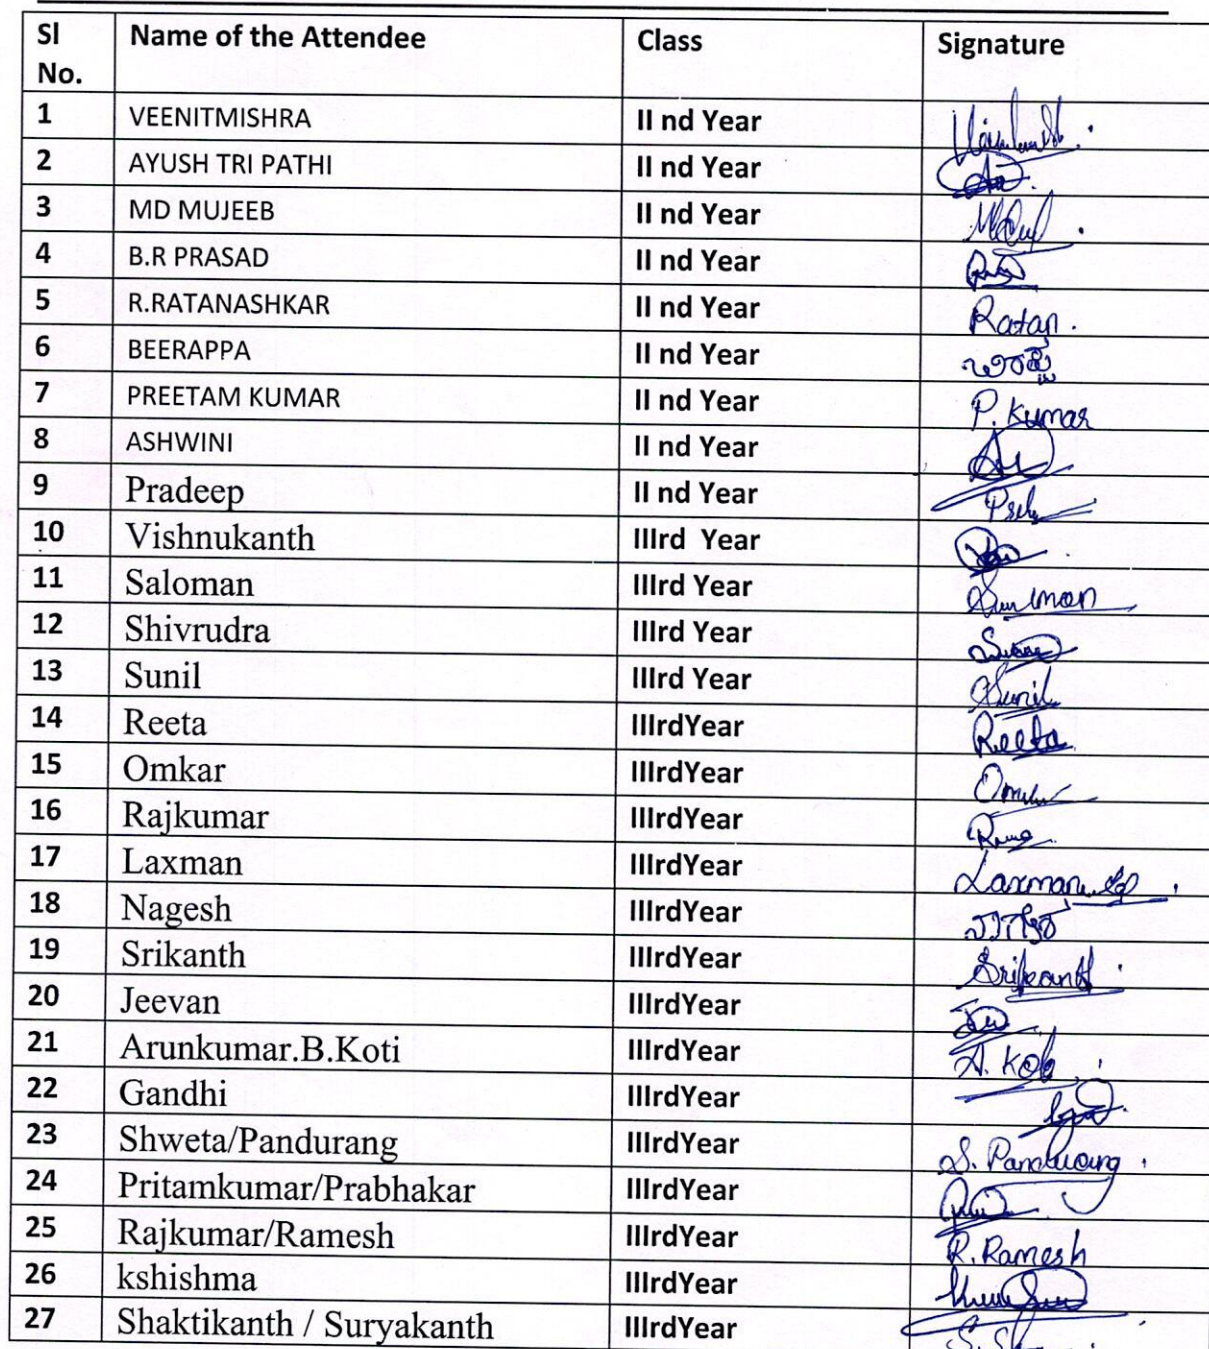 Sl No. Name of the Attendee Class Signature
1 VEENITMISHRA II nd Year
2 AYUSH TRI PATHI II nd Year
3 MD MUJEEB II nd Year
4 B.R PRASAD II nd Year
5 R.RATANASHKAR II nd Year Ratan.
6 BEERAPPA II nd Year
7 PREETAM KUMAR II nd Year P. Kumar
8 ASHWINI II nd Year
9 Pradeep II nd Year
10 Vishnukanth IIIrd Year
11 Saloman IIIrd Year
12 Shivrudra IIIrd Year
13 Sunil IIIrd Year Sunil
14 Reeta IIIrdYear Reeta
15 Omkar IIIrdYear
16 Rajkumar IIIrdYear
17 Laxman IIIrdYear Laxman
18 Nagesh IIIrdYear
19 Srikanth IIIrdYear Srikanth
20 Jeevan IIIrdYear
21 Arunkumar.B.Koti IIIrdYear
22 Gandhi IIIrdYear
23 Shweta/Pandurang IIIrdYear S. Pandurang
24 Pritamkumar/Prabhakar IIIrdYear
25 Rajkumar/Ramesh IIIrdYear R. Ramesh
26 kshishma IIIrdYear
27 Shaktikanth / Suryakanth IIIrdYear